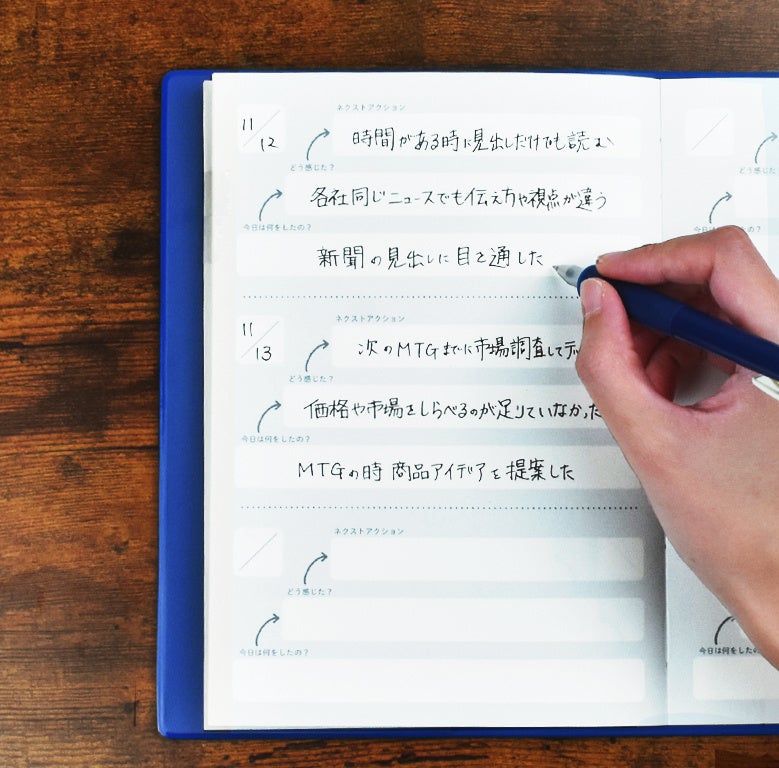 ネクストアクション
11/12
時間がある時に見出しだけでも読む
どう感じた?
各社同じニュースでも伝え方や視点が違う
今日は何をしたの?
新聞の見出しに目を通した
ネクストアクション
11/13
次のMTGまでに市場調査して
どう感じた?
価格や市場をしらべるのが足りていなかった
今日は何をしたの?
MTGの時 商品アイデアを提案した
ネクストアクション
どう感じた?
今日は何をしたの?
今日は何をしたの